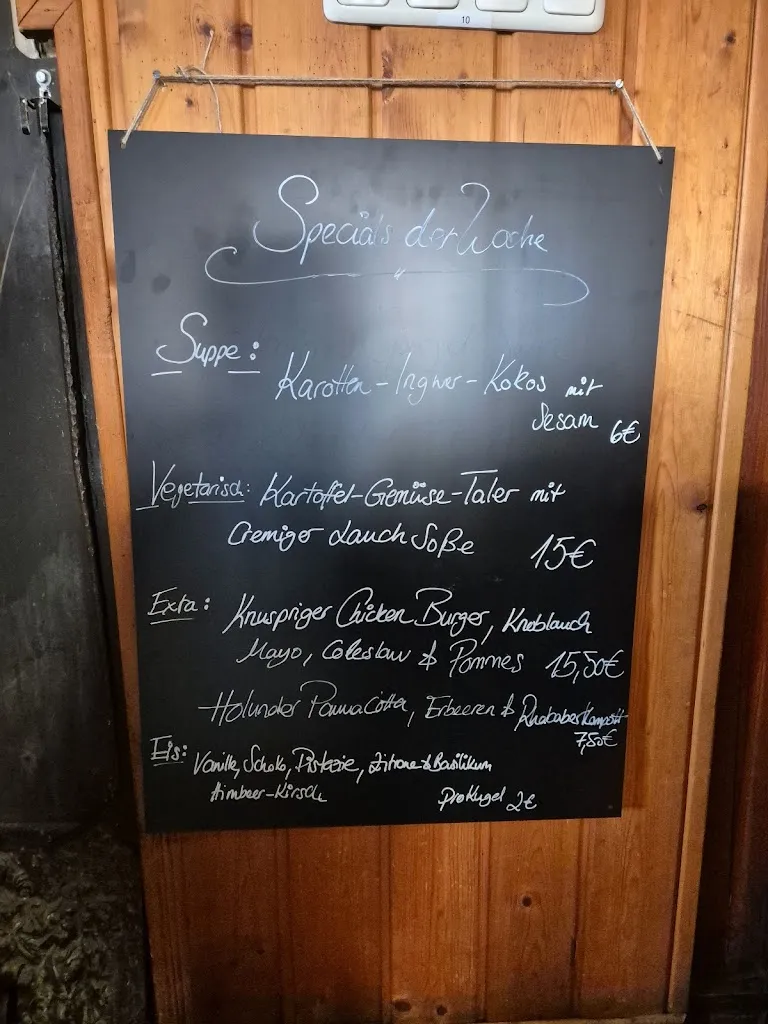 10
Specials der Woche
Suppe:
Karotten-Ingwer-Kokos mit
Sesam 6€
Vegetarisch: Kartoffel-Gemüse-Taler mit
Cremiger Lauch Soße 15€
Extra: Knuspriger Chicken Burger, Knoblauch
Mayo, Coleslaw & Pommes 15,50€
Holunder Panna Cotta, Erbeeren & Rhababerkompott
7,50€
Eis: Vanille, Schoko, Pistazie, Zitrone & Basilikum
Himbeer-Kirsch Pro Kugel 2€